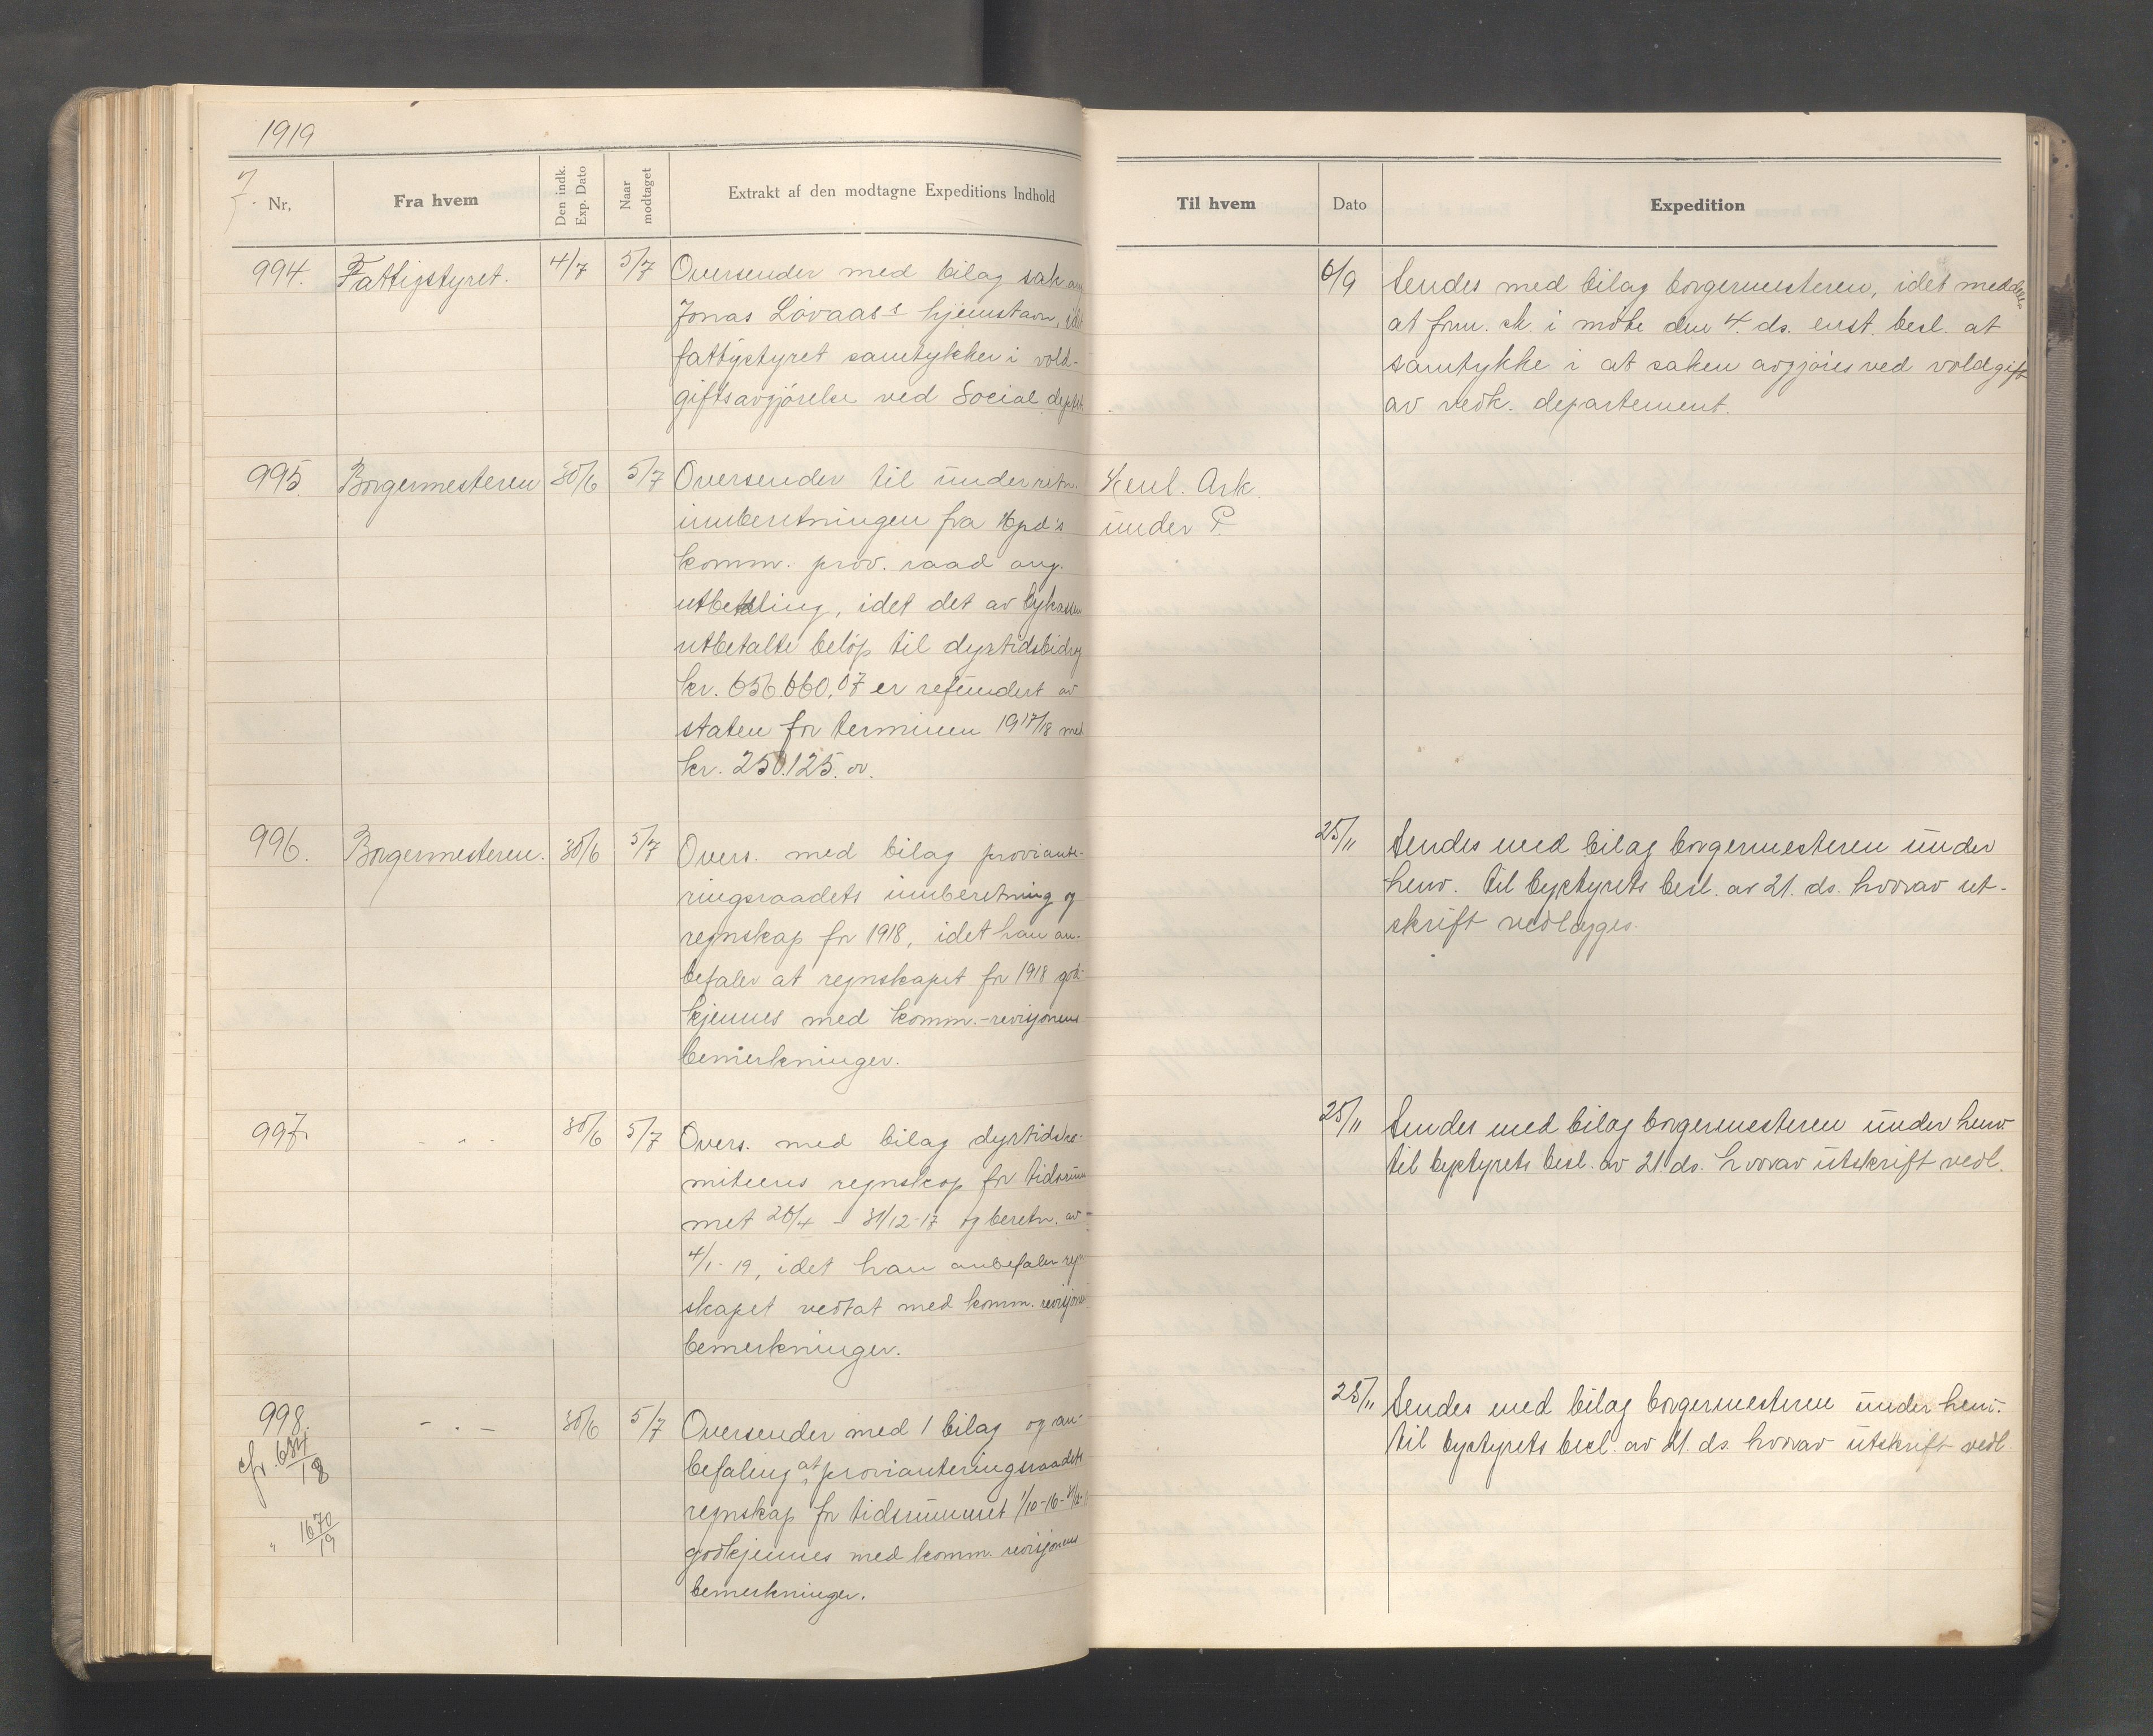 1919
J.
Nr.
Fra hvem
Den indk. Exp. Dato
Naar modtaget
Extrakt af den modtagne Expeditions Indhold
994.
Fattigstyret.
4/7
5/7
Oversender med bilag sak
Jonas Lóvaas's hjemstavn, idet
fattigstyret samtykker i vold-
giftsavgjórelse ved Social dept.
995.
Borgermesteren
30/6
5/7
Oversender til underretn.
innberetningen fra
komm. prov. raad ang.
utbetaling, idet det av bykassen
utbetalte belóp til dyrtidsbidrag
kr. 656.660,07 er refundert av
staten for terminen 1917/18 med
kr. 250.125.
996.
Borgermesteren.
30/6
5/7
Overs. med bilag proviante-
ringsraadets innberetning og
regnskap for 1918, idet han an-
befaler at regnskapet for 1918 god-
kjennes med komm.-revisjonens
bemerkninger.
997.
- . -
30/6
5/7
Overs. med bilag dyrtidsko-
miteens regnskap for tidsrum
met 26/4 - 31/12-17 og beretn. av
4/1-19, idet han anbefaler regn
skapet vedtat med komm. revisjonens
bemerkninger.
998.
cfr. 634/18
" 1670/19
- . -
30/6
5/7
Oversender med 1 bilag og an-
befaling at provianteringsraadets
regnskap for tidsrummet 1/10-16-31/12-
godkjennes med komm. revisjonens
bemerkninger.
Til hvem
Dato
Expedition
6/9
Sendes med bilag borgermesteren, idet meddeles
at form. sk. i móte den 4. ds. enst. besl. at
samtykke i at saken avgjóres ved voldgift
av vedk. departement.
Henl. Ark.
under P.
25/11
Sendes med bilag borgermesteren under
henv. til bystyrets besl. av 21. ds. hvorav ut-
skrift vedlægges.
25/11
Sendes med bilag borgermesteren under henv
til bystyrets besl. av 21 ds. hvorav utskrift vedl.
25/11
Sendes med bilag borgermesteren under henv.
til bystyrets besl. av 21. ds. hvorav utskrift vedl.